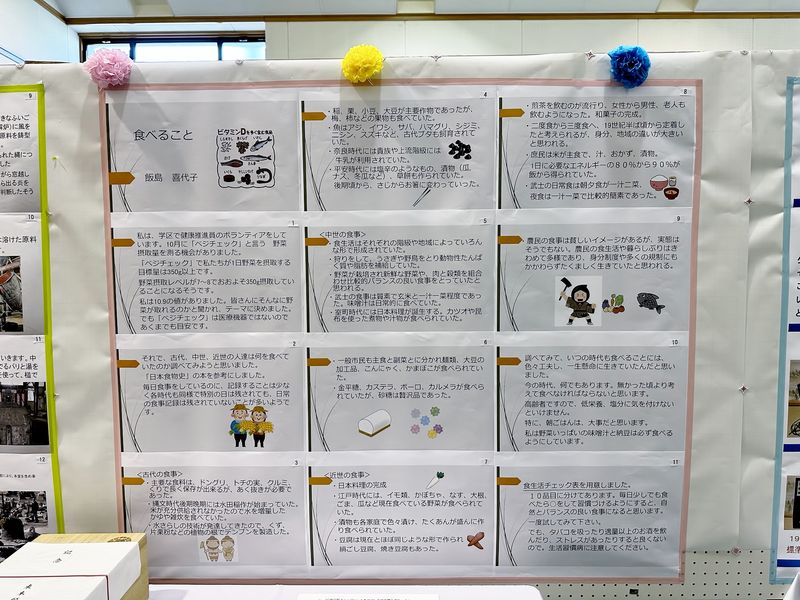 食べること
飯島 喜代子
ビタミンDを多く含む食品
1
私は、学区で健康推進員のボランティアをしています。10月に「ベジチェック」と言う 野菜摂取量を測る機会がありました。
「ベジチェック」で私たちが1日野菜を摂取する目標量は350g以上です。
野菜摂取レベルが7~8でおおよそ350g摂取していることになるそうです。
私は10.9の値がありました。皆さんにそんなに野菜が取れるのかと聞かれ、テーマに決めました。
でも「ベジチェック」は医療機器ではないのであくまでも目安です。
2
それで、古代、中世、近世の人達は何を食べていたのか調べてみようと思いました。
「日本食物史」の本を参考にしました。
毎日食事をしているのに、記録することは少なく各時代も同様で特別の日は残されても、日常の食事記録は残されていないことが多いようです。
3
<古代の食事>
・主要な食料は、ドングリ、トチの実、クルミ、くりで長く保存が出来るが、あく抜きが必要であった。
・縄文時代後期晩期には水田稲作が始まっていた。米が充分供給されなかったので水を増量したかゆや雑炊を食べていた。
・水さらしの技術が発達してきたので、くず、片栗粉などの植物の根でデンプンを製造した。
4
・稲、粟、小豆、大豆が主要作物であったが、梅、柿などの果物も食べていた。
・魚はアジ、イワシ、サバ、ハマグリ、シジミ、ニシン、スズキなど、古代ブタも飼育されていた。
・奈良時代には貴族や上流階級には牛乳が利用されていた。
・平安時代には塩辛のようなもの、漬物(瓜、ナス、冬瓜など)、草餅も作られていた。
後期頃から、さじからお箸に変わっていった。
5
<中世の食事>
・食生活はそれぞれの階級や地域によっていろんな形で形成されていた。
・狩りをして、うさぎや野鳥をとり動物性たんぱく質や脂肪を補給していた。
・野菜が栽培され新鮮な野菜や、肉と穀類を組合わせ比較的バランスの良い食事をとっていたと思われる。
・武士の食事は質素で玄米と一汁一菜程度であった。味噌汁は日常的に食べていた。
・室町時代には日本料理が誕生する。カツオや昆布を使った煮物や汁物が食べられていた。
6
・一般市民も主食と副菜とに分かれ麺類、大豆の加工品、こんにゃく、かまぼこが食べられていた。
・金平糖、カステラ、ボーロ、カルメラが食べられていたが、砂糖は贅沢品であった。
7
<近世の食事>
・日本料理の完成
・江戸時代には、イモ類、かぼちゃ、なす、大根、ごま、瓜など現在食べている野菜が食べられていた。
・漬物も各家庭で色々漬け、たくあんが盛んに作り食べられていた。
・豆腐は現在とほぼ同じような形で作られ絹ごし豆腐、焼き豆腐もあった。
8
・煎茶を飲むのが流行り、女性から男性、老人も飲むようになった。和菓子の完成。
・二度食から三度食へ、19世紀半ば頃から定着したと考えられるが、身分、地域の違いが大きいと思われる。
・庶民は米が主食で、汁、おかず、漬物。
・1日に必要なエネルギーの80%から90%が飯から得られていた。
・武士の日常食は朝夕食が一汁二菜、夜食は一汁一菜で比較的簡素であった。
9
農民の食事は貧しいイメージがあるが、実態はそうでもない。農民の食生活や暮らしぶりはきわめて多様であり、身分制度や多くの規制にもかかわらずたくましく生きていたと思われる。
10
調べてみて、いつの時代も食べることには、色々工夫し、一生懸命に生きていたんだと思いました。
今の時代、何でもあります。無かった頃より考えて食べなければならないと思います。
高齢者ですので、低栄養、塩分に気を付けないといけません。
特に、朝ごはんは、大事だと思います。
私は野菜いっぱいの味噌汁と納豆は必ず食べるようにしています。
11
食生活チェック表を用意しました。
10品目に分けてあります。毎日少しでも食べたら○をして習慣づけるようにすると、自然とバランスの良い食事になると思います。
一度試してみて下さい。
でも、タバコを吸ったり適量以上のお酒を飲んだり、ストレスがあったりすると良くないので。生活習慣病に注意してください。